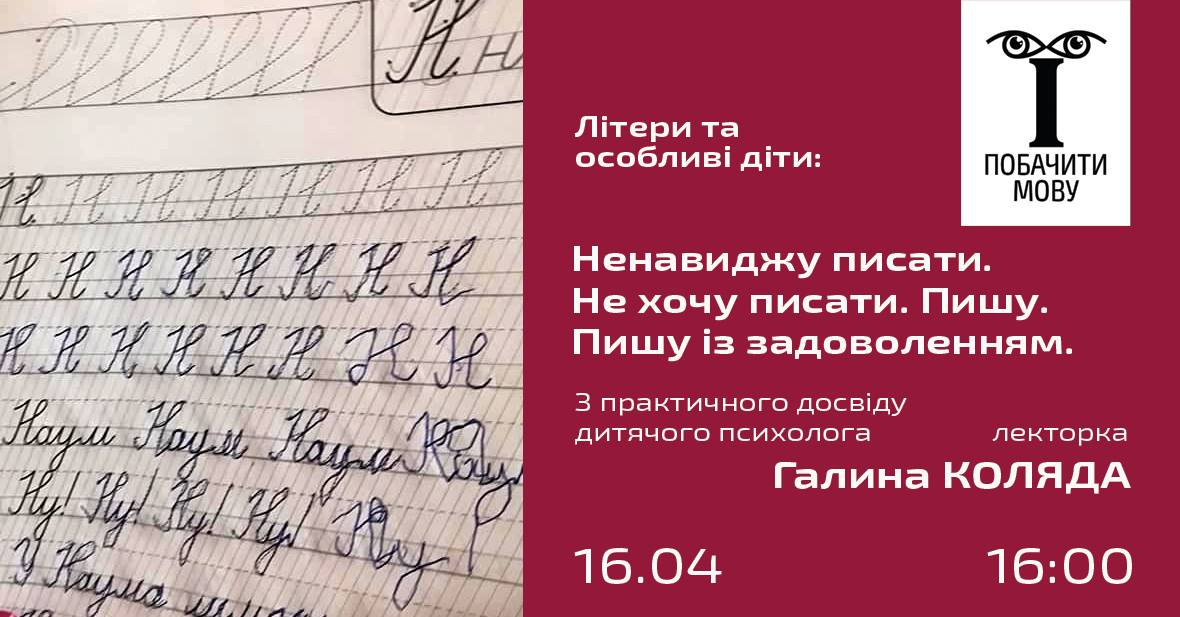 Н н
Н Н Н Н Н Н Н Н
Н Н Н Н Н Н Н Н
Н Н Н Н Н Н Н Н
Наум Наум Наум
Ну! Ну! Ну! Ну! Ну
У Наума
ПОБАЧИТИ
МОВУ
Літери та
особливі діти:
Ненавиджу писати.
Не хочу писати. Пишу.
Пишу із задоволенням.
З практичного досвіду
дитячого психолога
лекторка
Галина КОЛЯДА
16.04 16:00